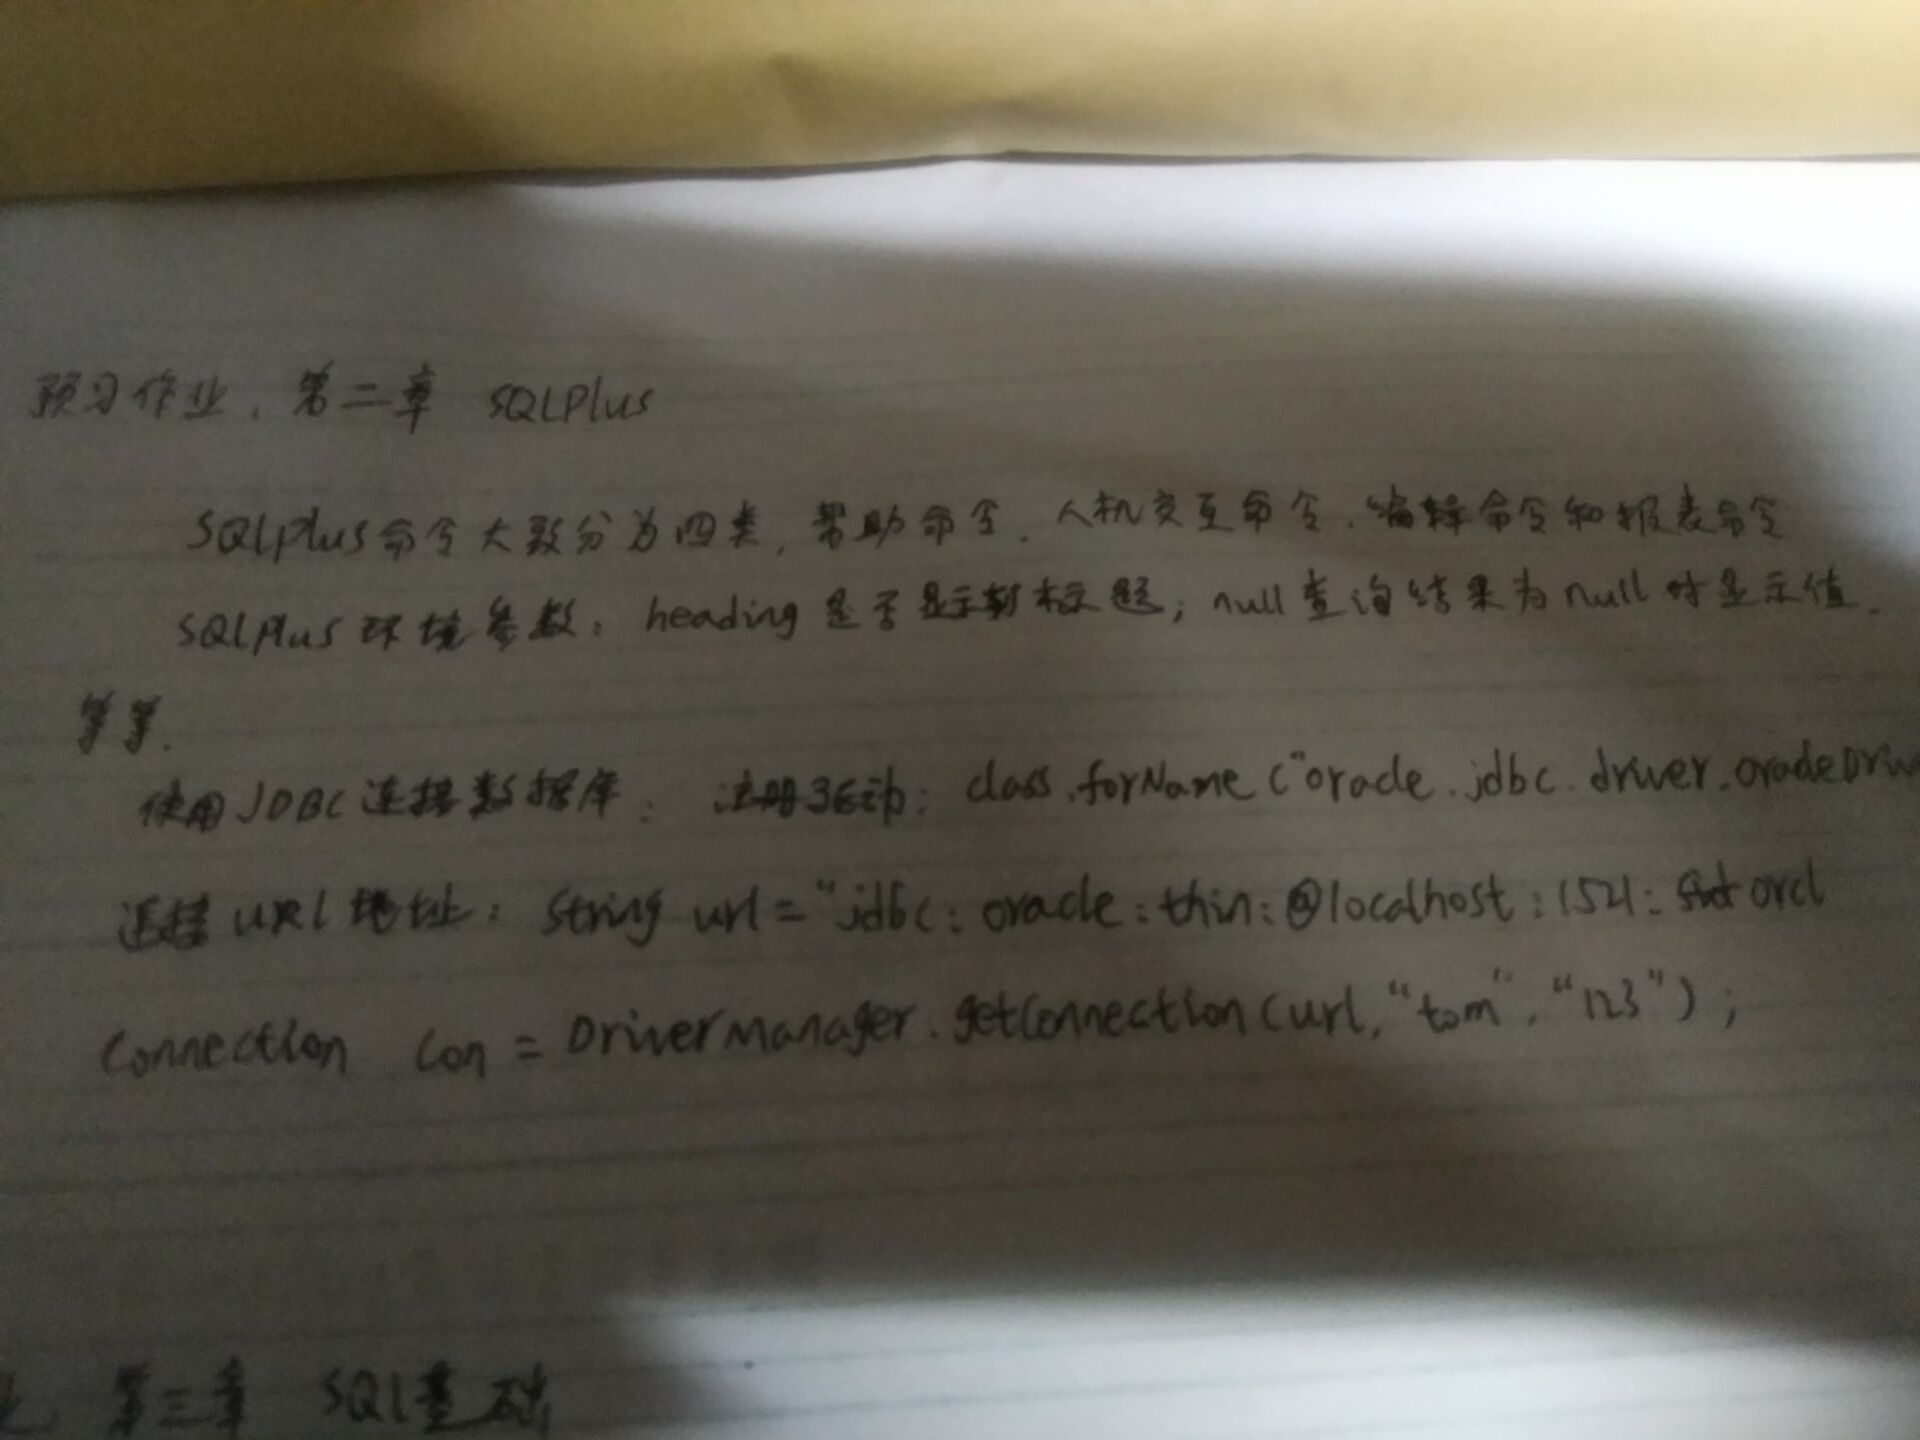 预习作业、第二章 SQLPlus
SQLPlus命令大致分为四类,帮助命令、人机交互命令、编辑命令和报表命令
SQLPlus环境参数: heading是否显示 标题; null查询结果为null时显示值.
等等.
使用JDBC连接数据库: 注册驱动: class.forName("oracle.jdbc.driver.oracleDriv
连接URL地址: String url="jdbc:oracle:thin:@localhost:1521: orcl
Connection con = DriverManager.getConnection(url,"tom","123");
第三章 SQL基础